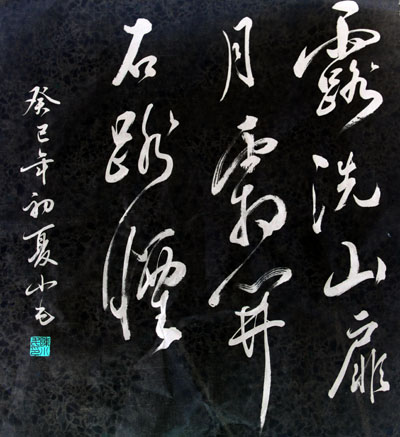 露洗山扉
月霜開
石路煙
癸巳年初夏小